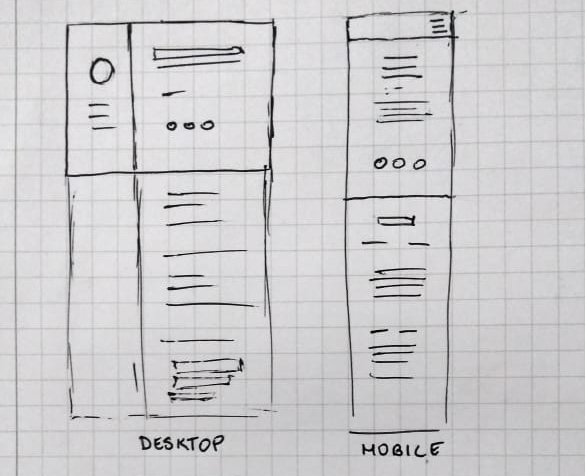 DESKTOP
MOBILE